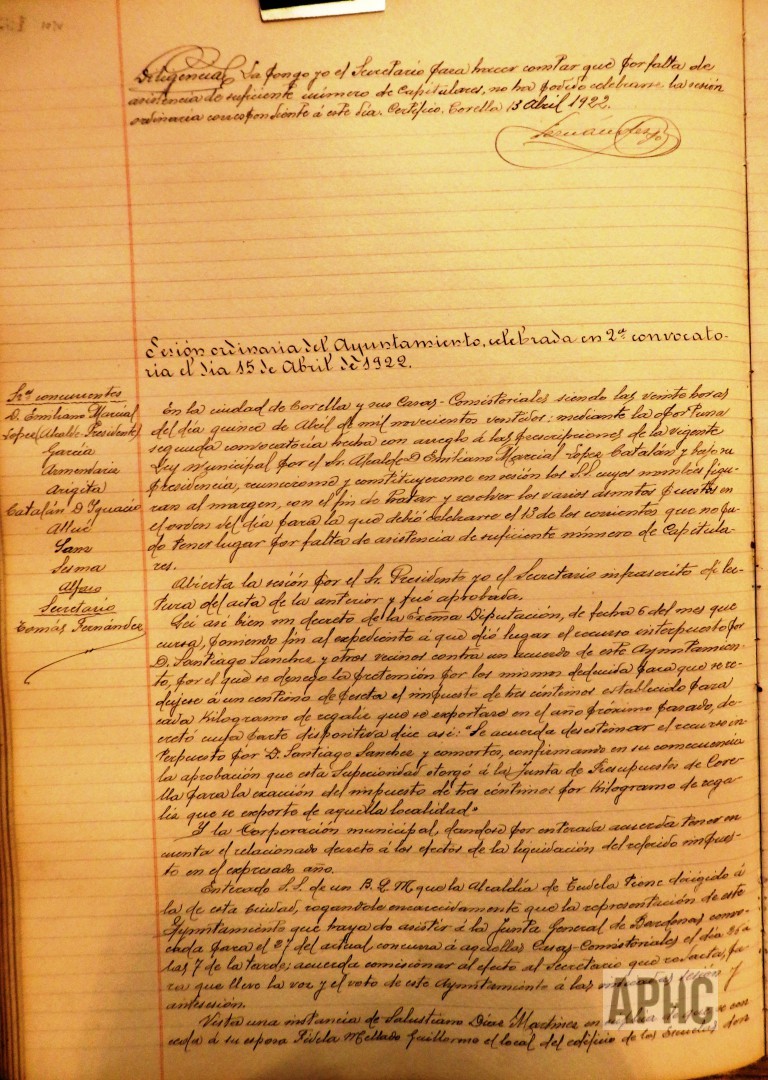 Diligencia La pongo yo el Secretario para hacer constar que por falta de
asistencia de suficiente número de Capitulares, no ha podido celebrarse la sesión
ordinaria correspondiente á este día. Certifico. Corella 13 Abril 1922.
Fernandez
Sesión ordinaria del Ayuntamiento, celebrada en 2ª convocato-
ria el día 15 de Abril de 1922.
Srs. concurrentes
D. Emiliano Marcial
Lopez (Alcalde-Presidente)
Garcia
Armendariz
Arigita
Catalán D. Ignacio
Allué
Sanz
Sesma
Alfaro
Secretario
Tomás Fernández
En la ciudad de Corella y sus Casas-Consistoriales siendo las veinte horas
del día quince de Abril de mil novecientos veintidos: mediante la oportuna
segunda convocatoria hecha con arreglo á las prescripciones de la vigente
Ley municipal por el Sr. Alcalde D. Emiliano Marcial Lopez Catalán y bajo su
presidencia, reunieronse y constituyeronse en sesión los S.S. cuyos nombres figu-
ran al margen, con el fin de tratar y resolver los varios asuntos puestos en
el orden del día para la que debió celebrarse el 13 de los corrientes que no pu-
do tener lugar por falta de asistencia de suficiente número de Capitula-
res.
Abierta la sesión por el Sr. Presidente yo el Secretario infrascrito dí lec-
tura del acta de la anterior y fué aprobada.
Leí asi bien un decreto de la Excma Diputación, de fecha 6 del mes que
cursa, poniendo fin al expediente á que dió lugar el recurso interpuesto por
D. Santiago Sanchez y otros vecinos contra un acuerdo de este Ayuntamien-
to, por el que se denegó la pretensión por los mismos deducida para que se re-
dujese á un centimo de peseta el impuesto de tres céntimos establecido para
cada Kilogramo de regaliz que se exportase en el año próximo pasado, de-
creto cuya parte dispositiva dice asi: "Se acuerda desestimar el recurso in-
terpuesto por D. Santiago Sanchez y consortes, confirmando en su consecuencia
la aprobación que esta Superioridad otorgó á la Junta de Presupuestos de Core-
lla para la exacción del impuesto de tres céntimos por Kilogramo de rega-
liz que se exporte de aquella localidad"
Y la Corporación municipal, dandose por enterada acuerda tener en
cuenta el relacionado decreto á los efectos de la liquidación del referido impues-
to en el expresado año.
Enterado S.S. de un B.L.M que la Alcaldía de Tudela tiene dirigido á
la de esta Ciudad, rogandole encarecidamente que la representación de este
Ayuntamiento que haya de asistir á la Junta General de Bardenas convo-
cada para el 27 del actual concurra á aquellas Casas-Consistoriales el día 26 a
las 7 de la tarde; acuerda comisionar al efecto al Secretario que redacta, pa-
ra que lleve la voz y el voto de este Ayuntamiento á las indicadas sesión y
antesesión.
Vista una instancia de Salustiano Diaz Martinez en súplica de que se con
ceda á su esposa Fidela Mellado Guillermo el local del edificio de las Escuelas don
APHC